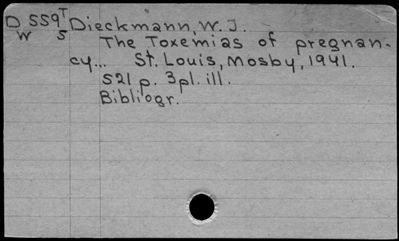 D 559 T Dieckmann, W. J.
W 5
The Toxemias of pregnan-
cy... St. Louis, Mosby, 1941.
521 p. 3pl. ill.
Bibliogr.